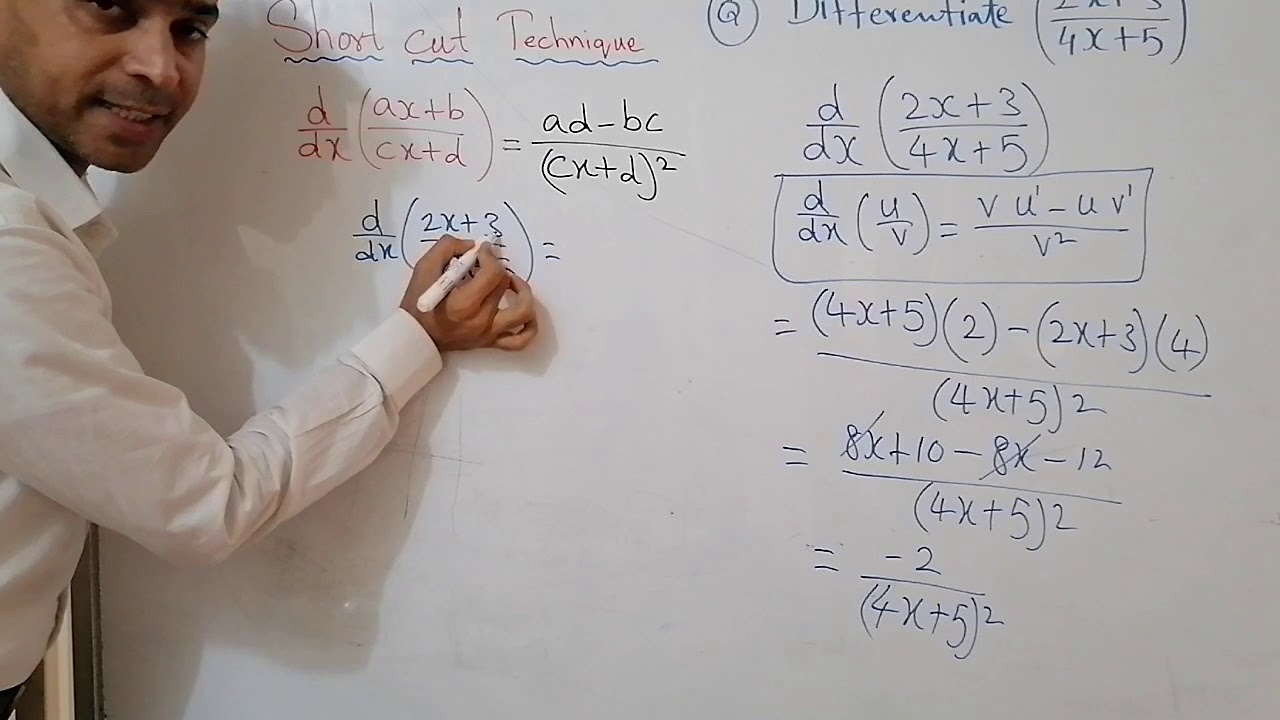 Short cut Technique
d/dx (ax+b / cx+d) = ad-bc / (cx+d)²
d/dx (2x+3 / ) =
Q Differentiate (2x+3 / 4x+5)
d/dx (2x+3 / 4x+5)
d/dx (u/v) = v u' - u v' / v²
= (4x+5)(2) - (2x+3)(4) / (4x+5)2
= 8x+10-8x-12 / (4x+5)2
= -2 / (4x+5)2